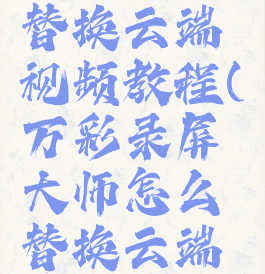 替换云端
视频教程(
万彩录屏
大师怎么
替换云端